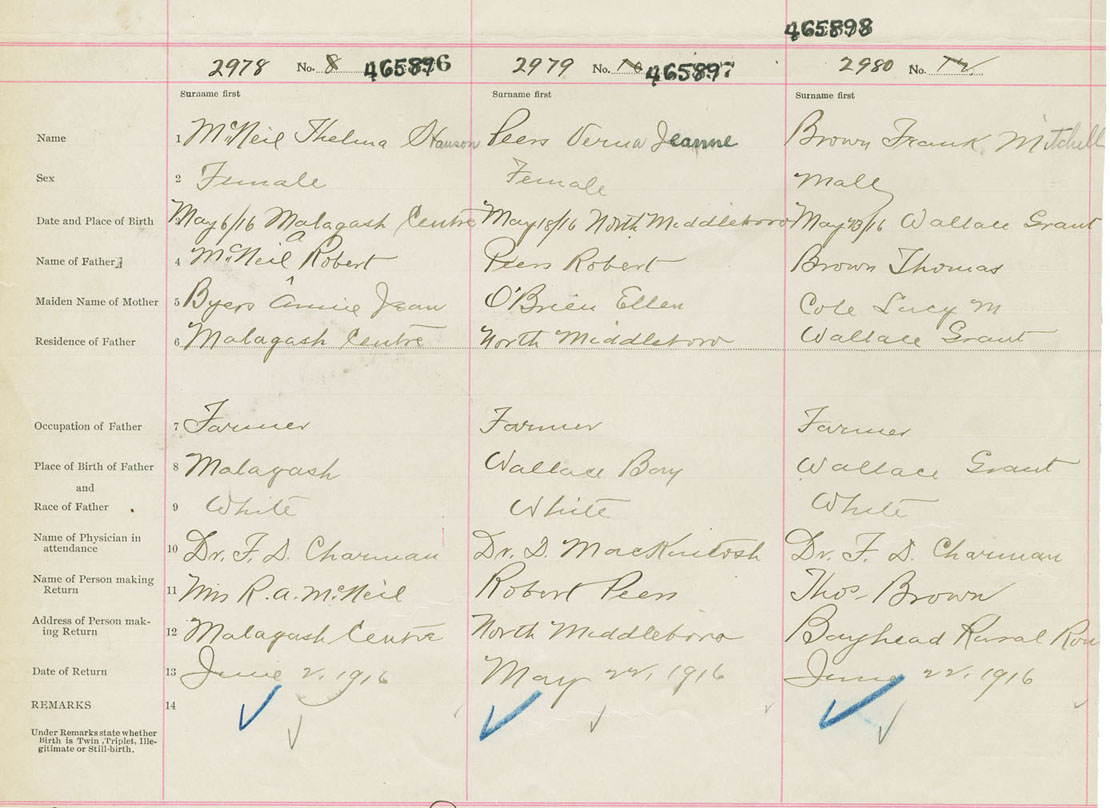 465898
2978 No. 8 465896 2979 No. 10 465897 2980 No. 12
Surname first Surname first Surname first
Name 1 McNeil Thelma Peers Verna Jeanne Brown Frank Mitchell
Sex 2 Female Female Male
Date and Place of Birth 3 May 6/16 Malagash Centre May 18/16 North Middleboro May 23/16 Wallace Grant
Name of Father 4 McNeil A Robert Peers Robert Brown Thomas
Maiden Name of Mother 5 Byers Annie Jean O'Brien Ellen Cole Lucy M
Residence of Father 6 Malagash Centre North Middleboro Wallace Grant
Occupation of Father 7 Farmer Farmer Farmer
Place of Birth of Father 8 Malagash Wallace Bay Wallace Grant
and
Race of Father 9 White White White
Name of Physician in
attendance 10 Dr. F. D. Charman Dr. D. MacKintosh Dr. F. D. Charman
Name of Person making
Return 11 Mrs R. A. McNeil Robert Peers Thos. Brown
Address of Person mak-
ing Return 12 Malagash Centre North Middleboro Bayhead Rural Rou
Date of Return 13 June 2, 1916 May 22, 1916 June 22, 1916
REMARKS 14
Under Remarks state whether
Birth is Twin, Triplet, Ille-
gitimate or Still-birth.